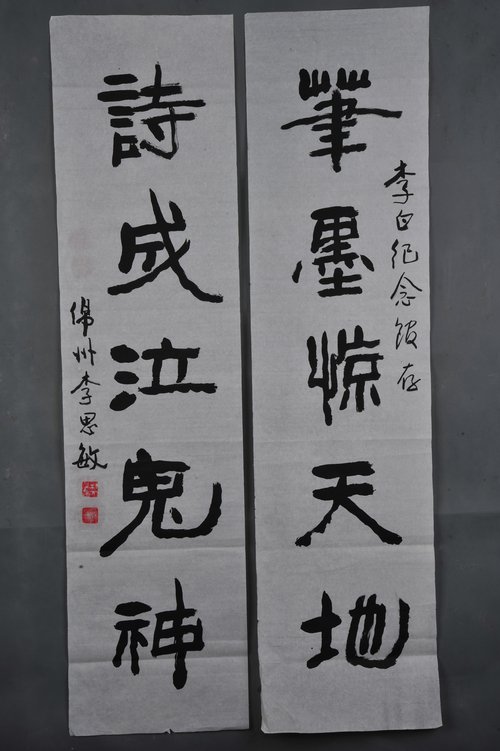 李白纪念馆存
筆墨惊天地
詩成泣鬼神
绵州李思敏